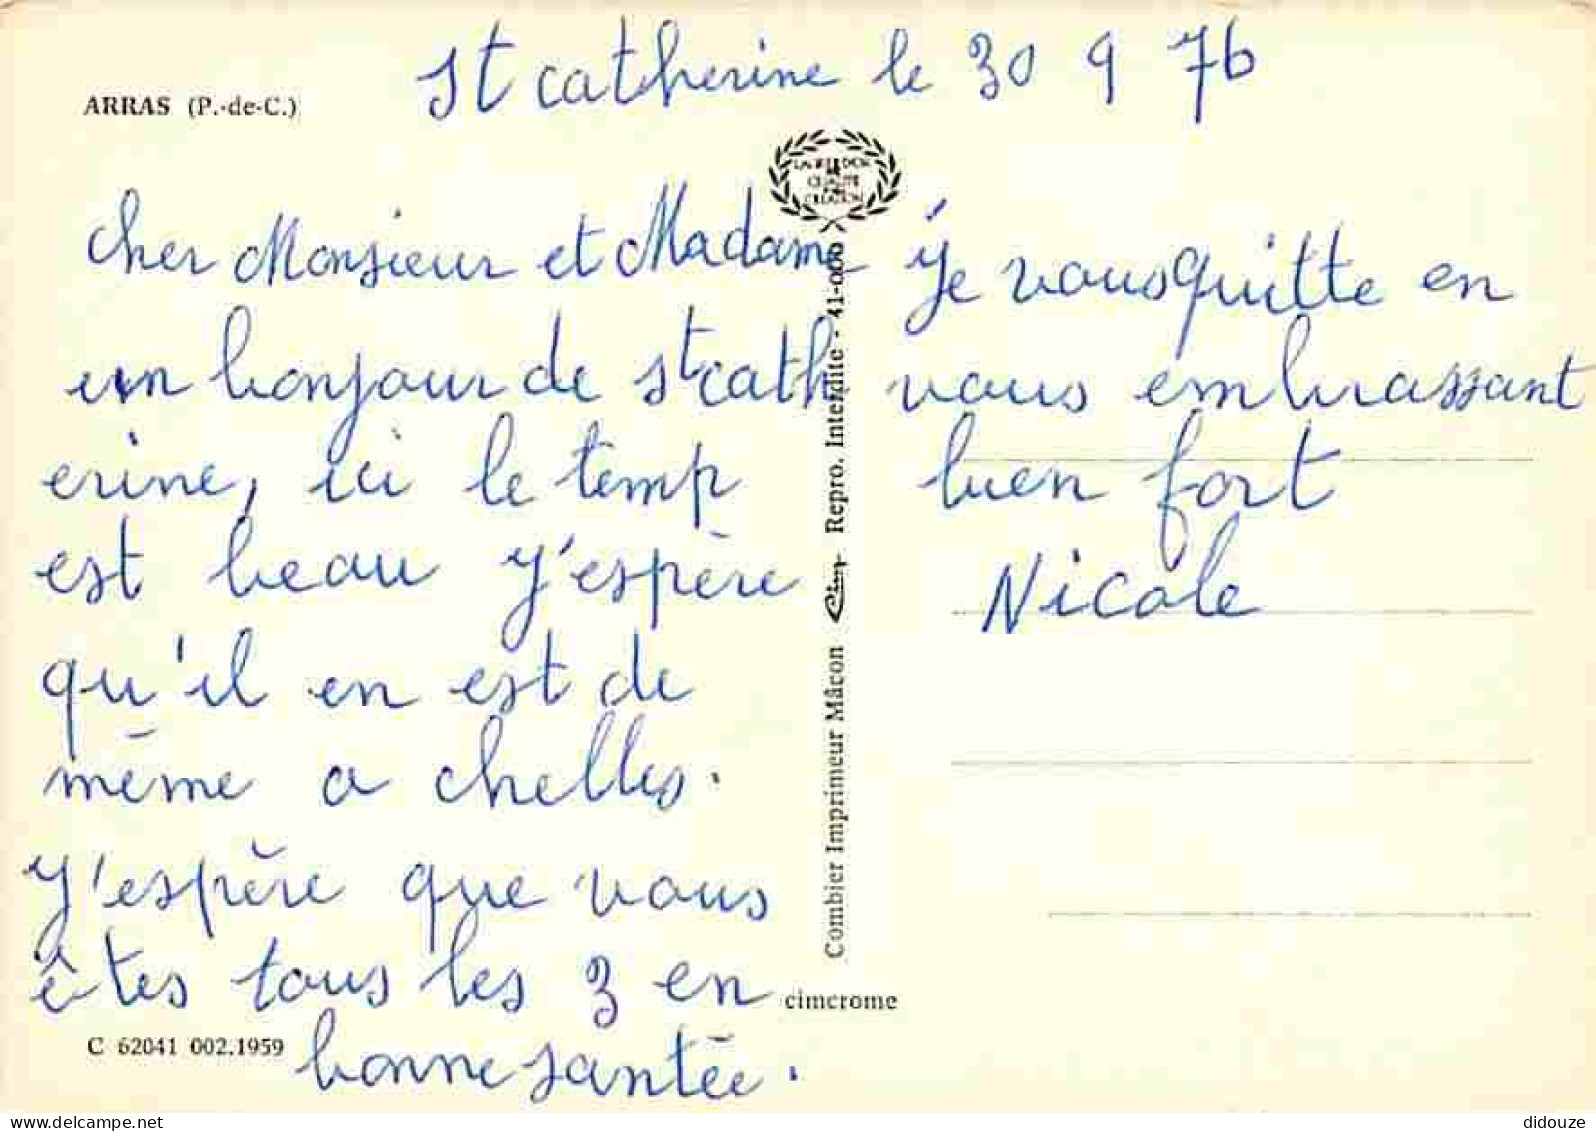 St catherine le 30 9 76
ARRAS (P.-de-C.)
cher Monsieur et Madame
un bonjour de St cath
erine, ici le temp
est beau j'espère
qu'il en est de
même a chelles.
j'espère que vous
êtes tous les 3 en
bonne santée.
C 62041 002.1959
Combier Imprimeur Mâcon Cim Repro. Interdite - 41-000
cimcrome
je vous quitte en
vous embrassant
bien fort
Nicole
www.delcampe.net
didouze